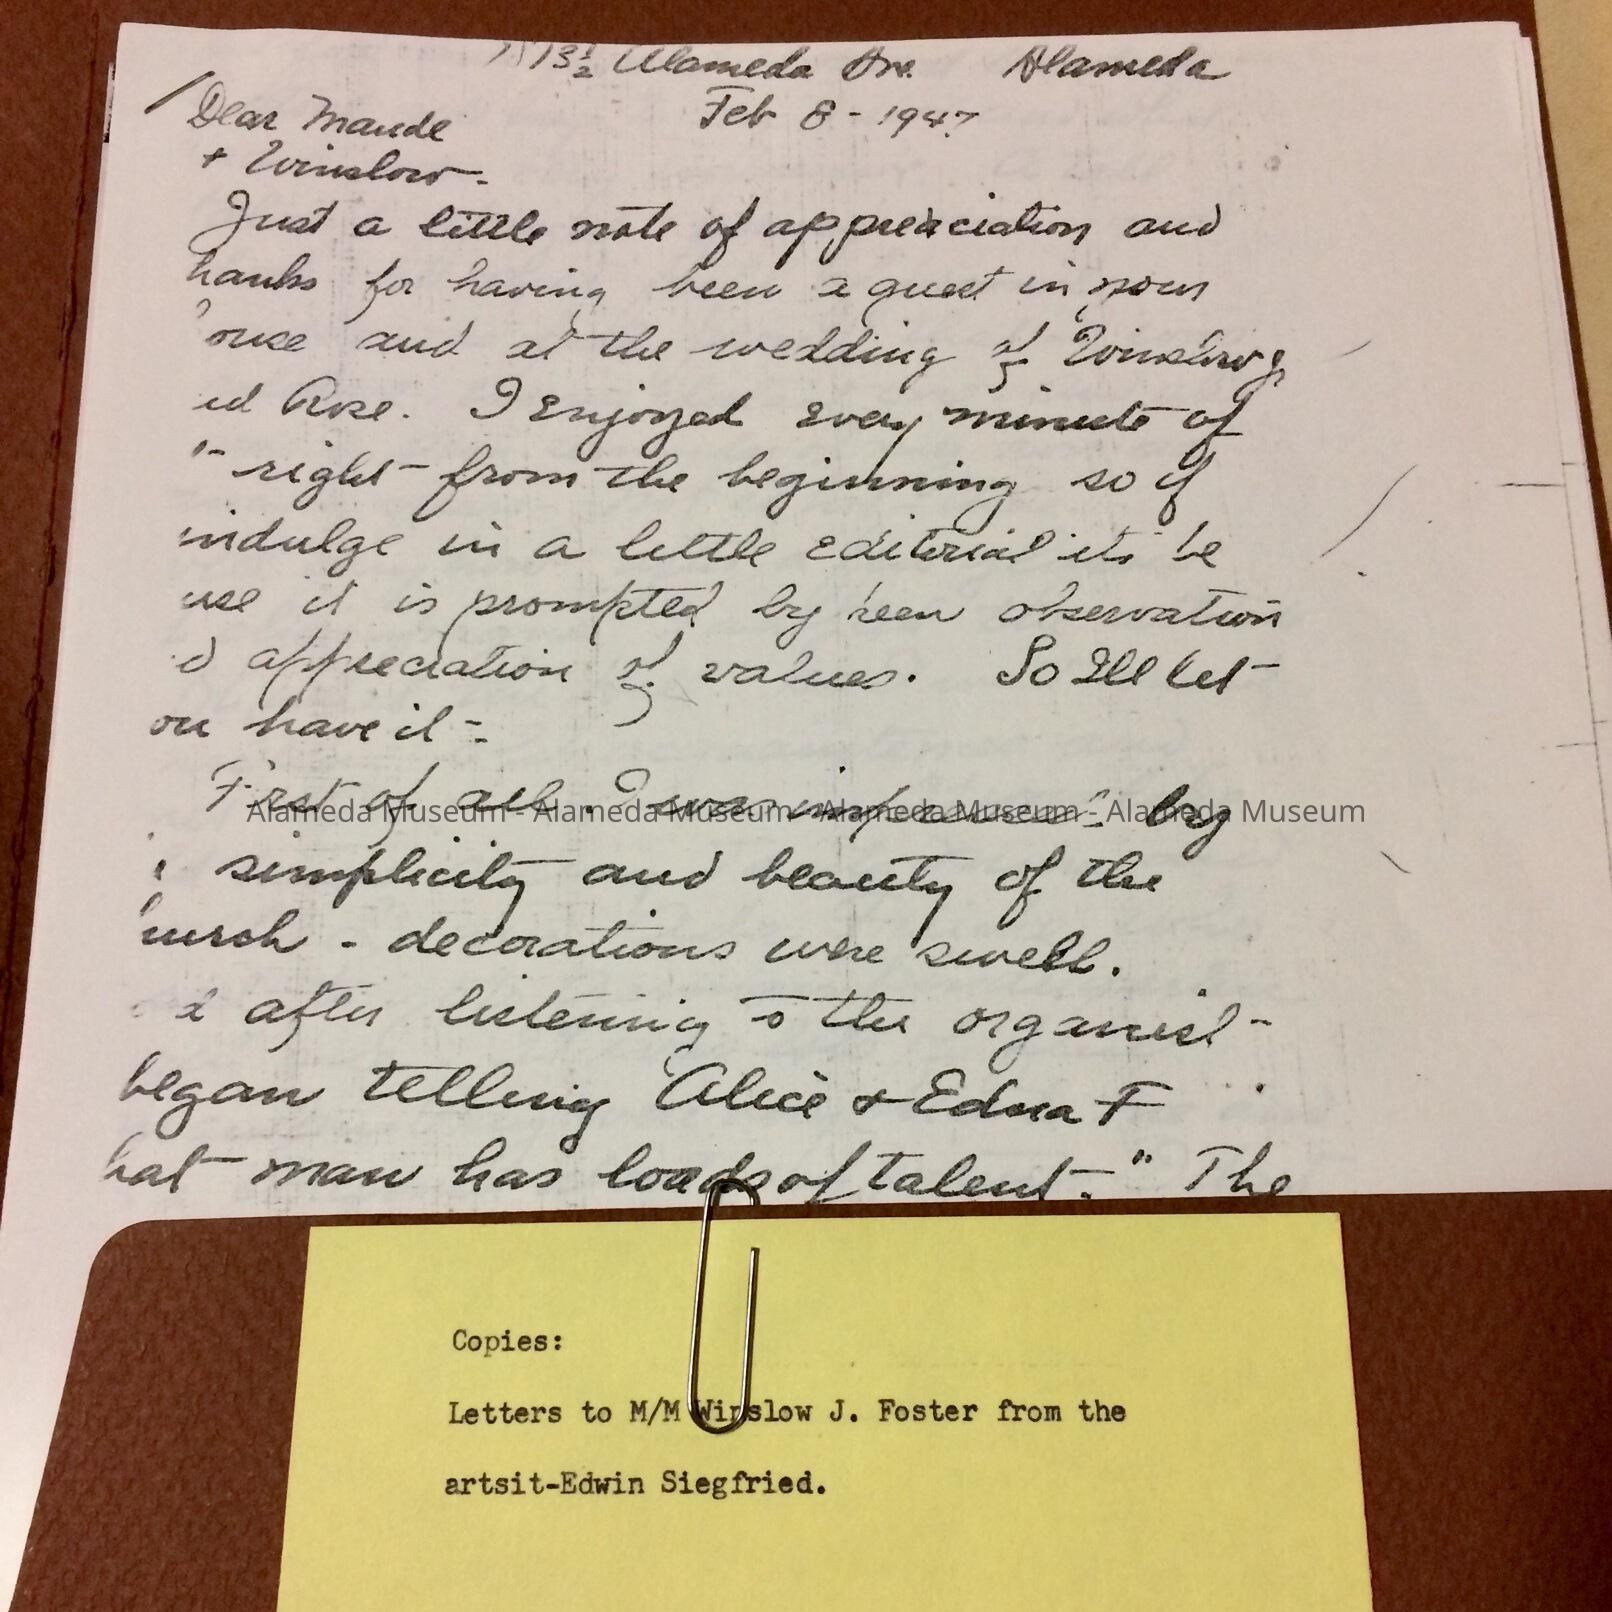 73½ Alameda Ave. Alameda
Feb 8 - 1947
Dear Maude
+ Winslow -
Just a little note of appreciation and
hanks for having been a guest in your
ouse and at the wedding of Winslow Jr
nd Rose. I enjoyed every minute of
right from the beginning so if
indulge in a little editorial its be
use it is prompted by keen observation
d appreciation of values. So Ill let
ou have it -
First of all. I was impressed by
simplicity and beauty of the
hurch - decorations were swell.
d after listening to the organist -
began telling Alice + Edna F
hat man has loads of talent." The
Alameda Museum - Alameda Museum - Alameda Museum - Alameda Museum
Copies:
Letters to M/M Winslow J. Foster from the
artsit-Edwin Siegfried.